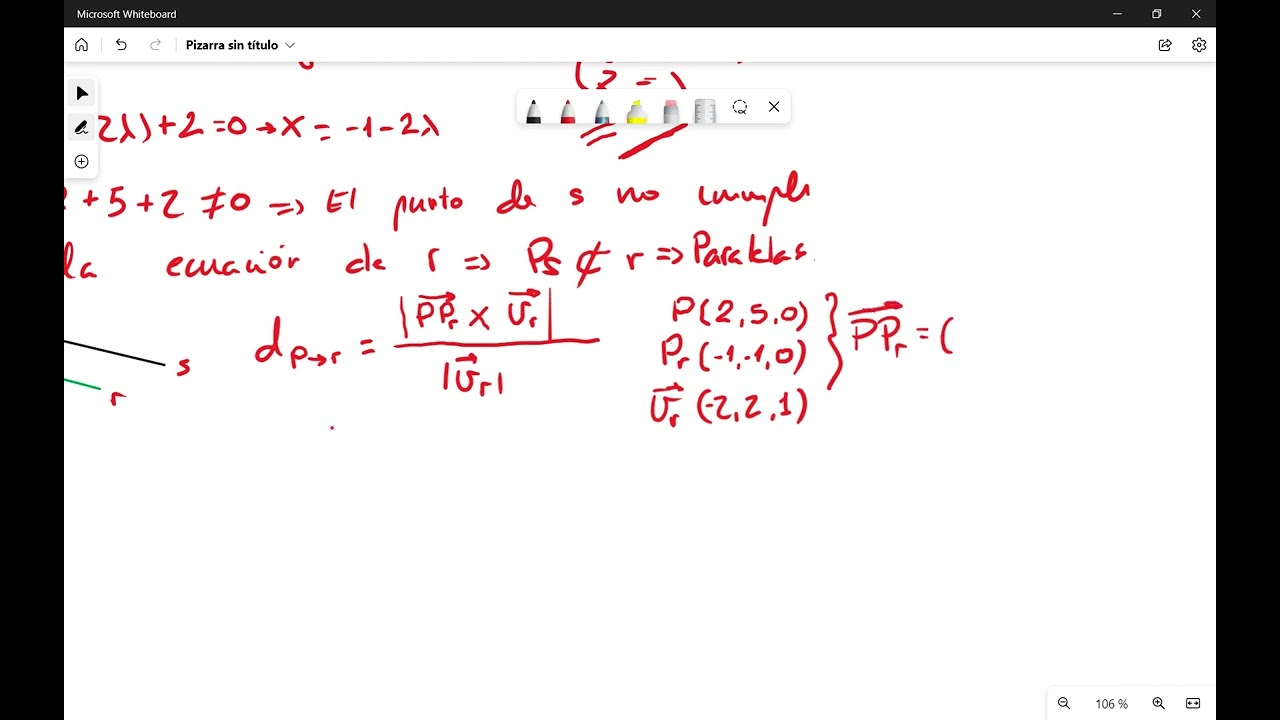 Microsoft Whiteboard
Pizarra sin título
2λ)+2=0→X=-1-2λ
+5+2≠0⇒ El punto de s no cumple
la ecuación de r ⇒ Ps ⊄ r ⇒ Paralelas.
s
r
d P→r = |PPr x Ur| / |Ur|
P(2,5,0)
Pr(-1,-1,0)
} PPr = (
Ur(-2,2,1)
106 %